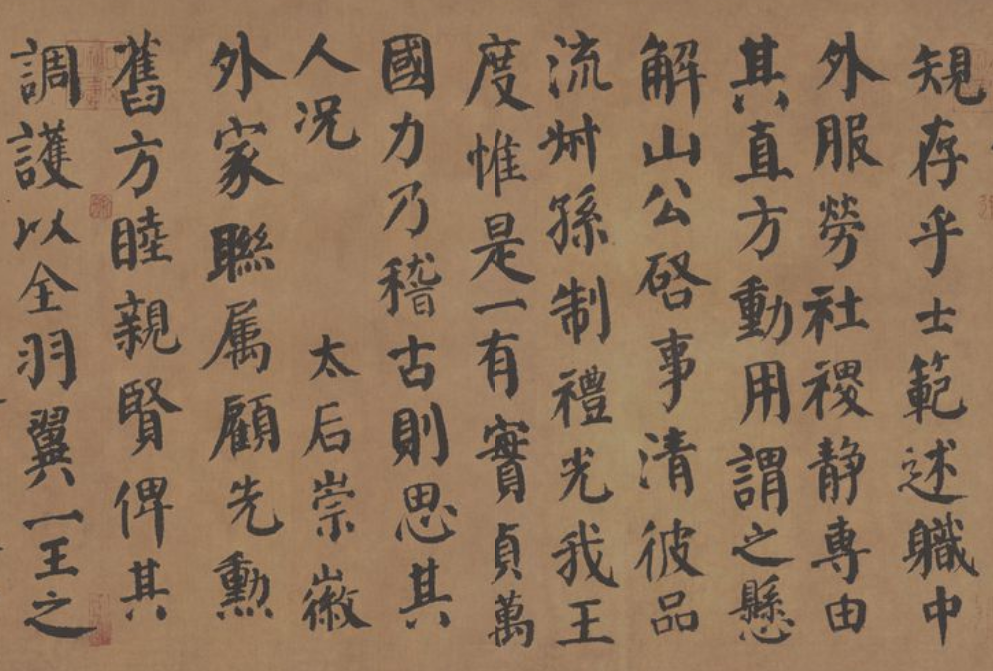 規存乎士範述職中
外服勞社稷静專由
其直方動用謂之懸
解山公啓事清彼品
流叔孫制禮光我王
度惟是一有實貞萬
國力乃稽古則思其
人況太后崇徽
外家聯属顧先勲
舊方睦親賢俾其
調護以全羽翼一王之